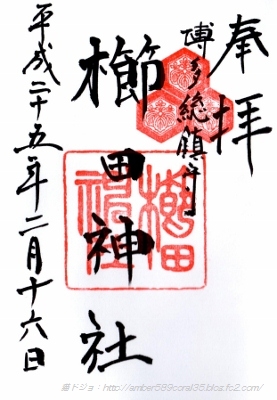 奉拝
博多総鎮守
櫛田神社
平成二十五年二月十六日
櫛田神社
庭ドジョ：http://amber589coral35.blog.fc2.com/